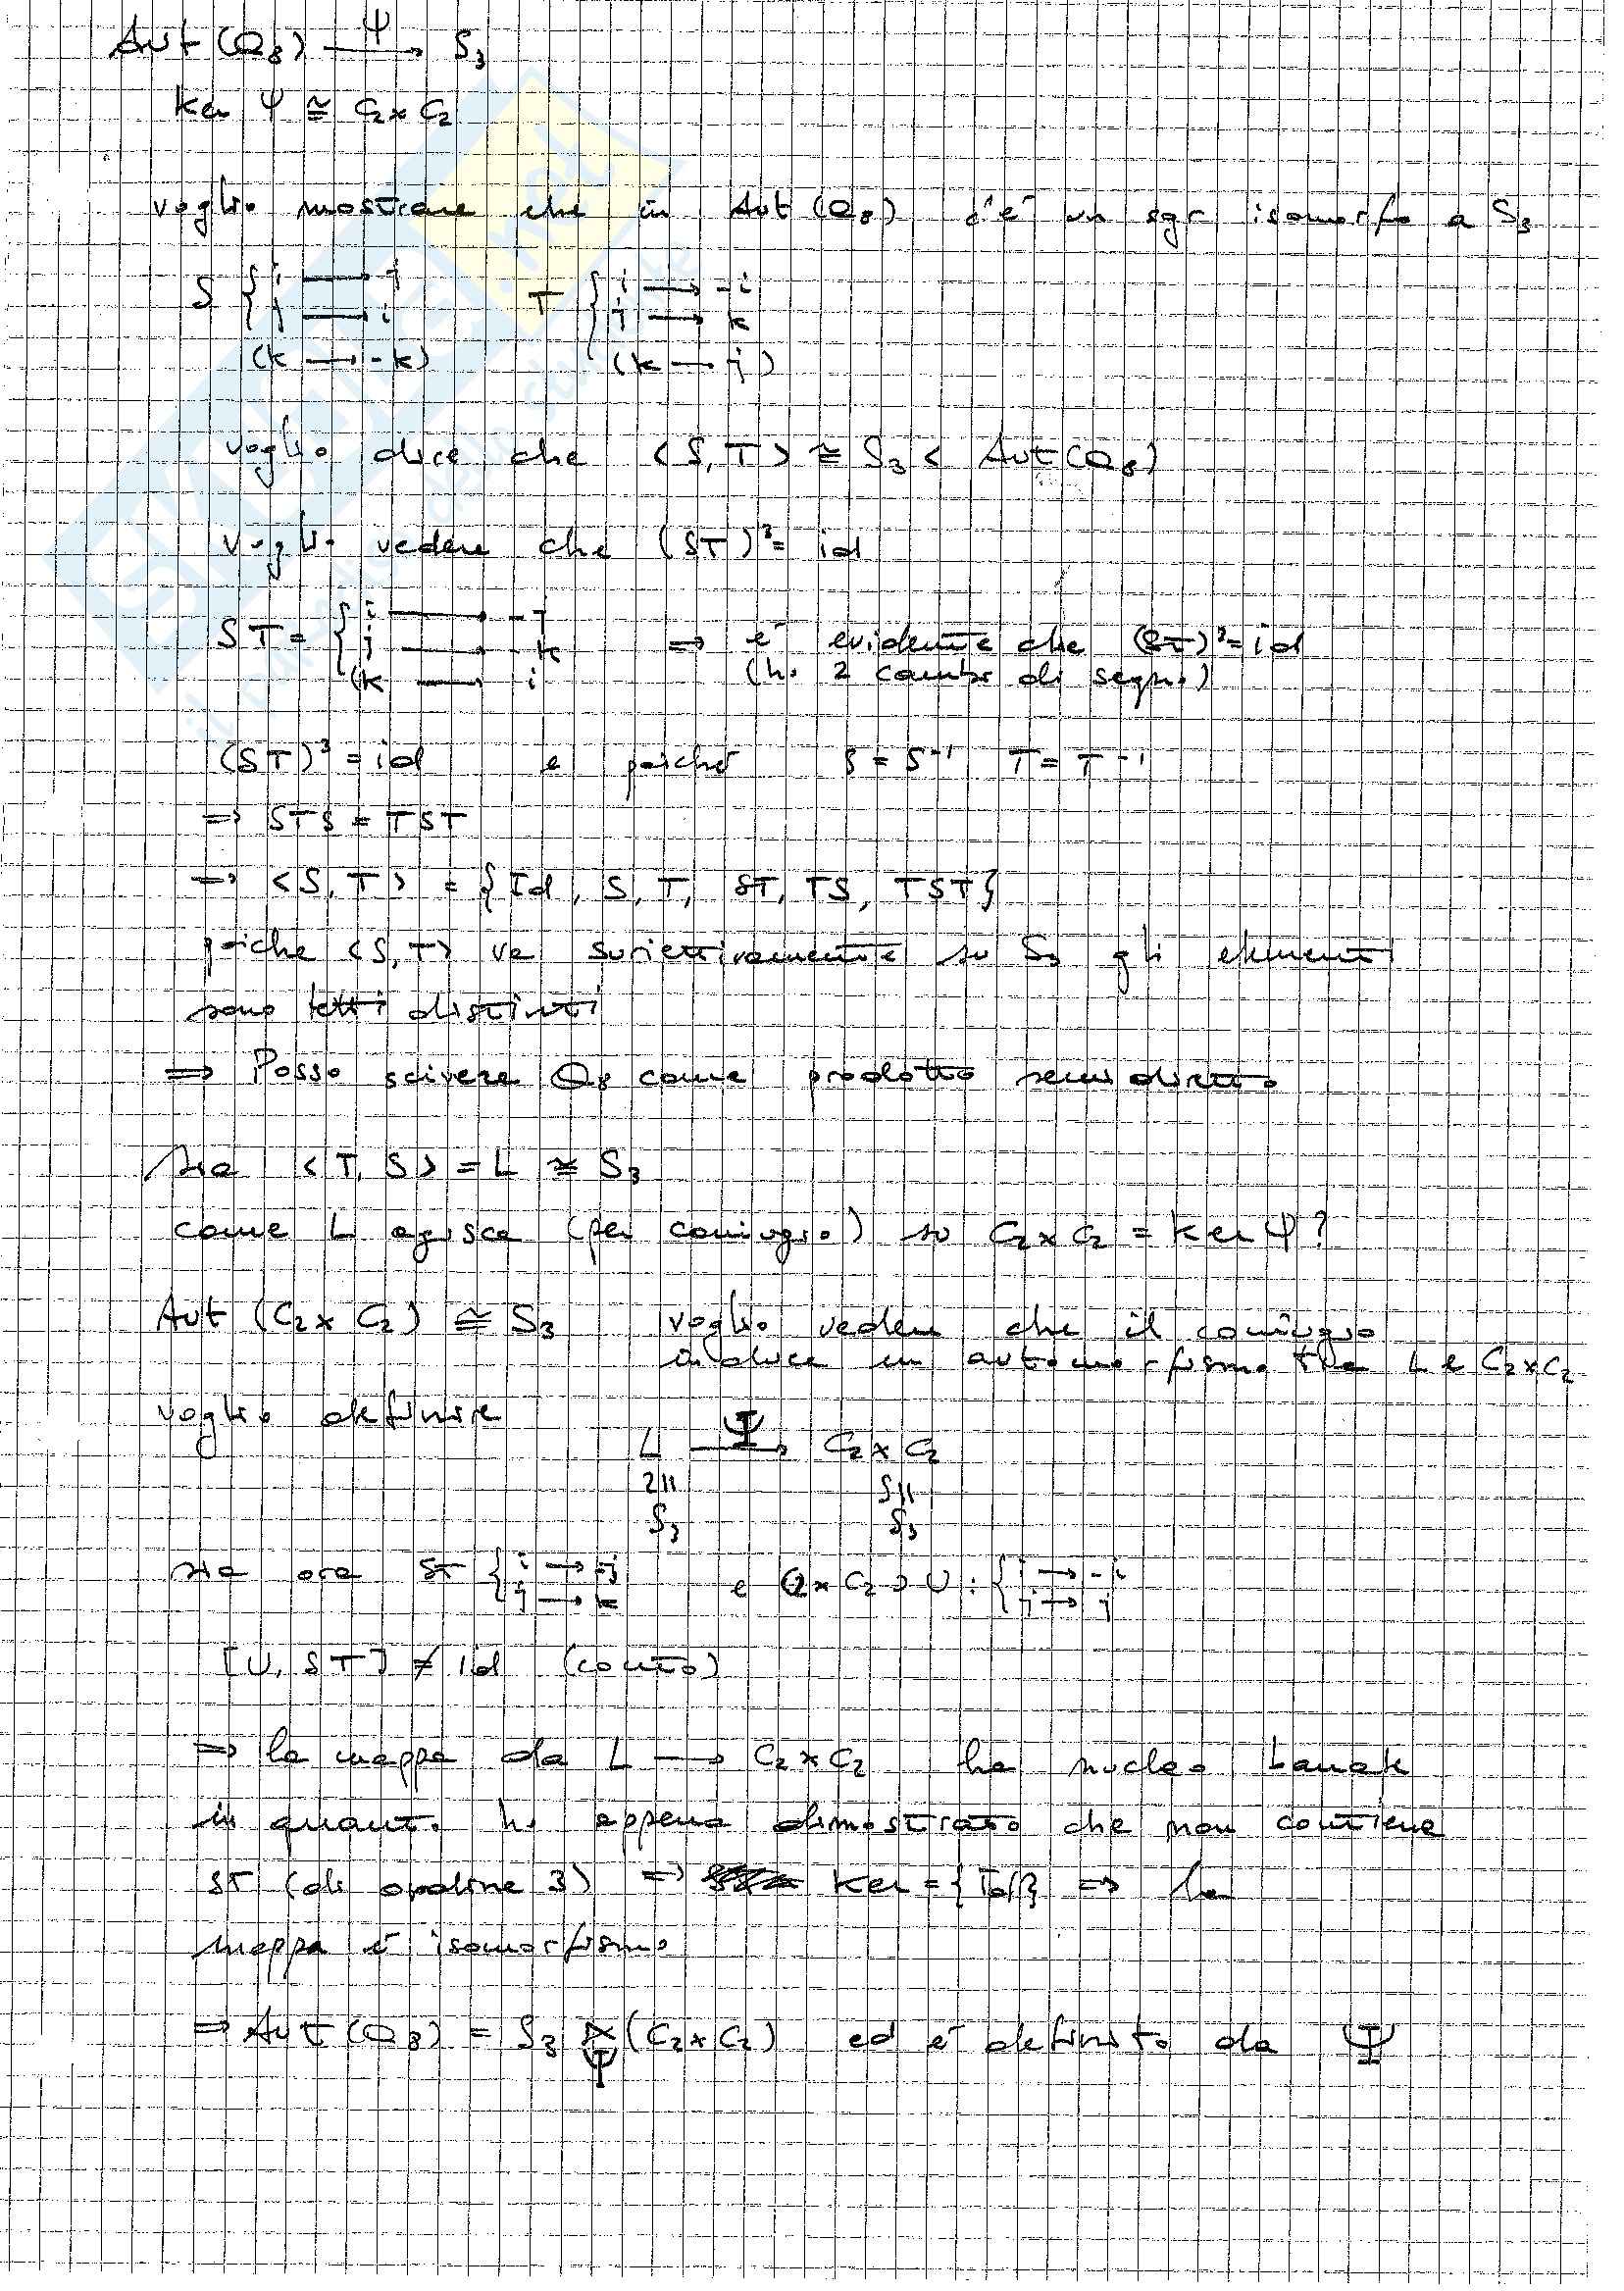 Aut(Q₈) —Ψ→ S₃
Ker Ψ ≅ C₂×C₂
voglio mostrare che in Aut(Q₈) c'è un sgr isomorfo a S₃
S { i → j T { i → -i
j → i j → k
(k → -k) (k → j)
voglio dire che <S,T> ≅ S₃ < Aut(Q₈)
voglio vedere che (ST)³ = id
ST = { i → -j
j → -k ⟹ è evidente che (ST)³ = id
(k → i (ho 2 cambi di segno)
(ST)³ = id e poiché S = S⁻¹ T = T⁻¹
⟹ STS = TST
⟹ <S,T> = {Id, S, T, ST, TS, TST}
poiche <S,T> va suriettivamente su S₃ gli elementi
sono tutti distinti
⟹ Posso scivere Q₈ come prodotto semidiretto
sia <T,S> = L ≅ S₃
come L agisce (per coniugio) su C₂×C₂ = Ker Ψ?
Aut (C₂×C₂) ≅ S₃ voglio vedere che il coniugio
induce un automorfismo tra L e C₂×C₂
voglio definire
L —Ψ→ C₂×C₂
≅ ≅
S₃ S₃
sia ora ST { i → -j e C₂×C₂ ∋ U: { i → -i
j → k j → j
[U, ST] ≠ id (conto)
⟹ la mappa da L → C₂×C₂ ha nucleo banale
in quanto ho appena dimostrato che non contiene
ST (di ordine 3) ⟹ Ker = {Id} ⟹ la
mappa è isomorfismo
⟹ Aut(Q₈) = S₃ ⋊ (C₂×C₂) ed è definito da Ψ
Ψ